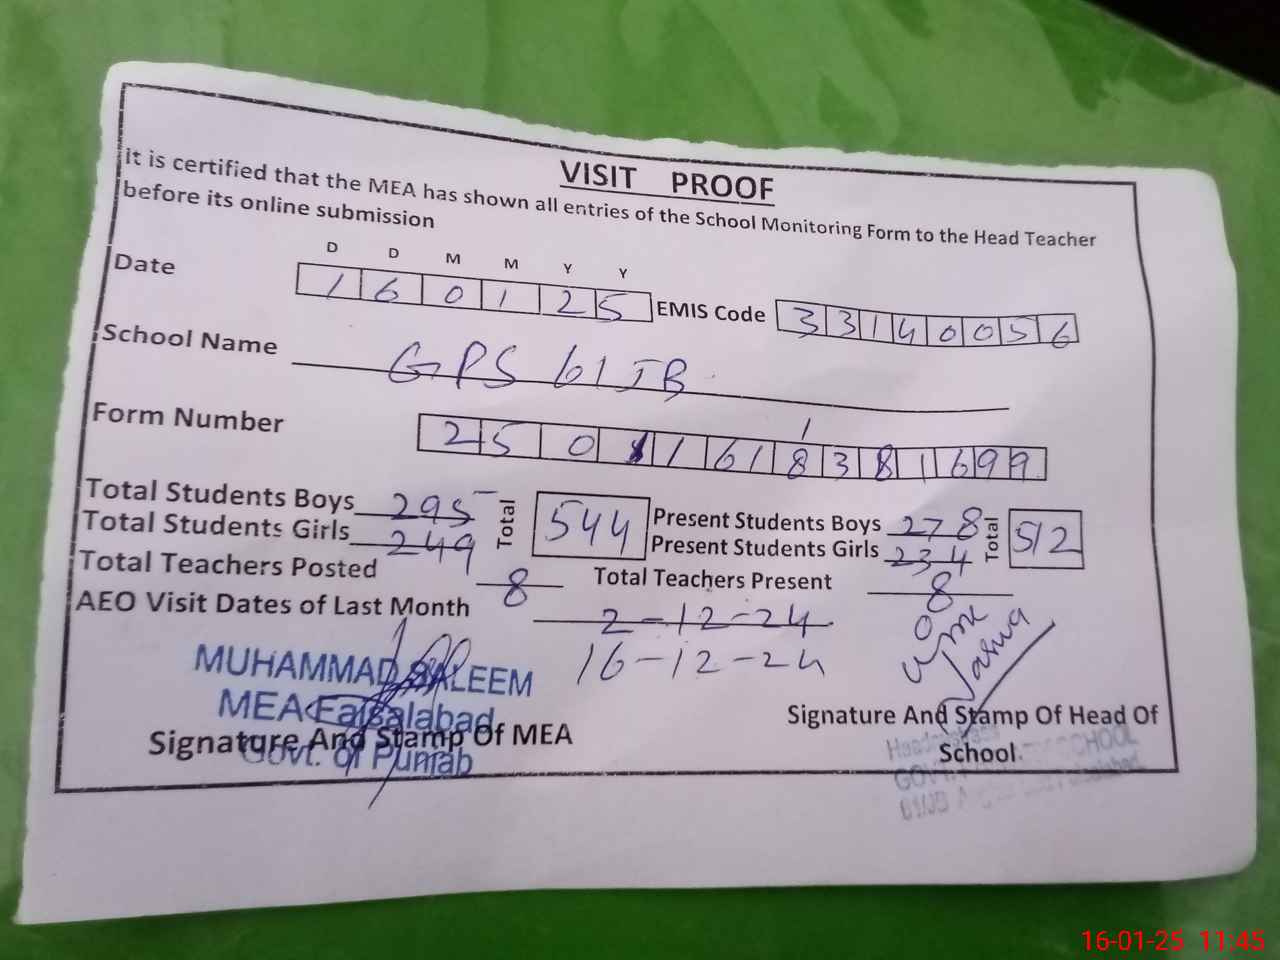 VISIT PROOF
it is certified that the MEA has shown all entries of the School Monitoring Form to the Head Teacher
before its online submission
D D M M Y Y
Date 1 6 0 1 2 5 EMIS Code 3 3 1 4 0 0 5 6
School Name GPS 61 JB
1
Form Number 2 5 0 1 1 6 1 8 3 8 1 6 9 9
Total Students Boys 295 Total 544 Present Students Boys 278 Total 512
Total Students Girls 249 Present Students Girls 234
Total Teachers Posted 8 Total Teachers Present 8
AEO Visit Dates of Last Month 2-12-24
16-12-24
MUHAMMAD SALEEM
MEA Faisalabad
Govt. of Punjab
Signature And Stamp Of MEA
Signature And Stamp Of Head Of
School.
SCHOOL
16-01-25 11:45